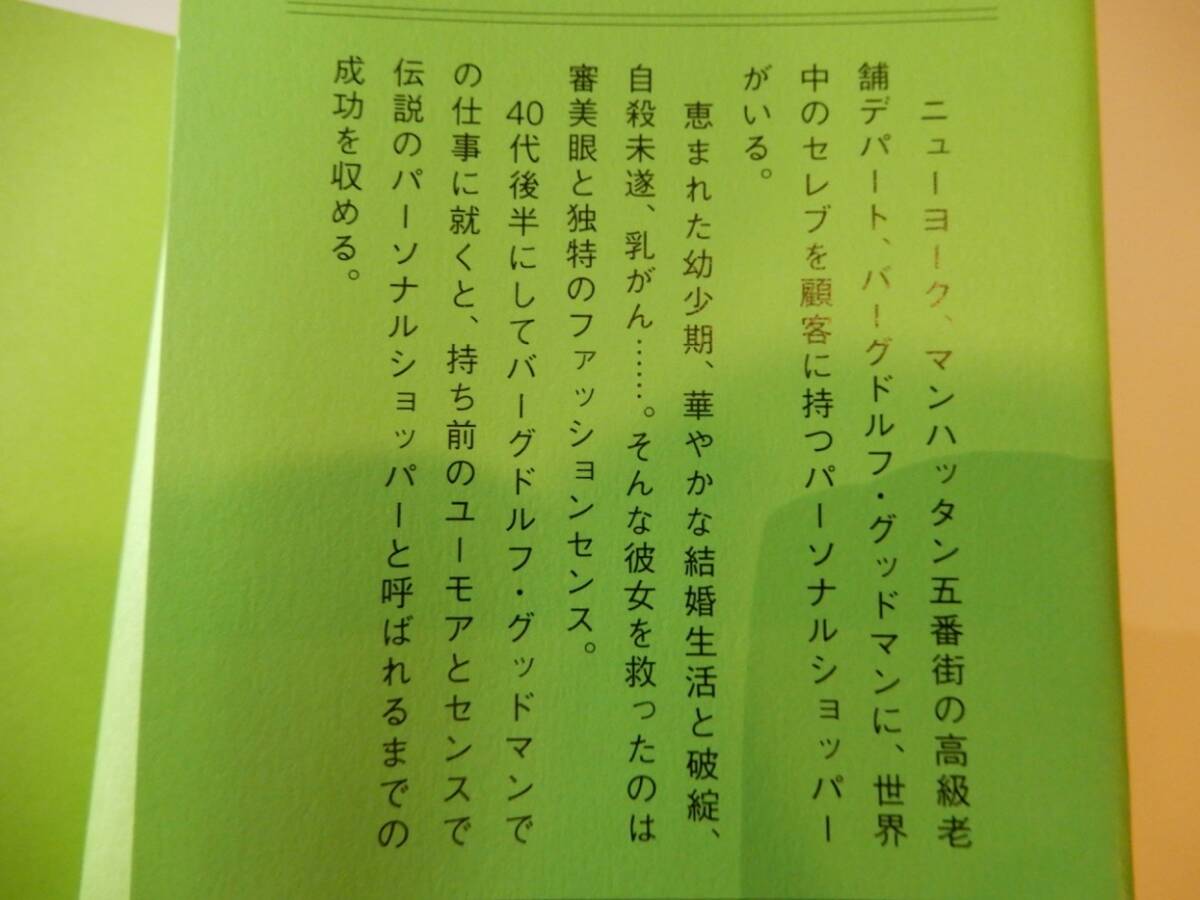 ニューヨーク、マンハッタン五番街の高級老
舗デパート、バーグドルフ・グッドマンに、世界
中のセレブを顧客に持つパーソナルショッパー
がいる。
恵まれた幼少期、華やかな結婚生活と破綻、
自殺未遂、乳がん……。そんな彼女を救ったのは
審美眼と独特のファッションセンス。
40代後半にしてバーグドルフ・グッドマンで
の仕事に就くと、持ち前のユーモアとセンスで
伝説のパーソナルショッパーと呼ばれるまでの
成功を収める。